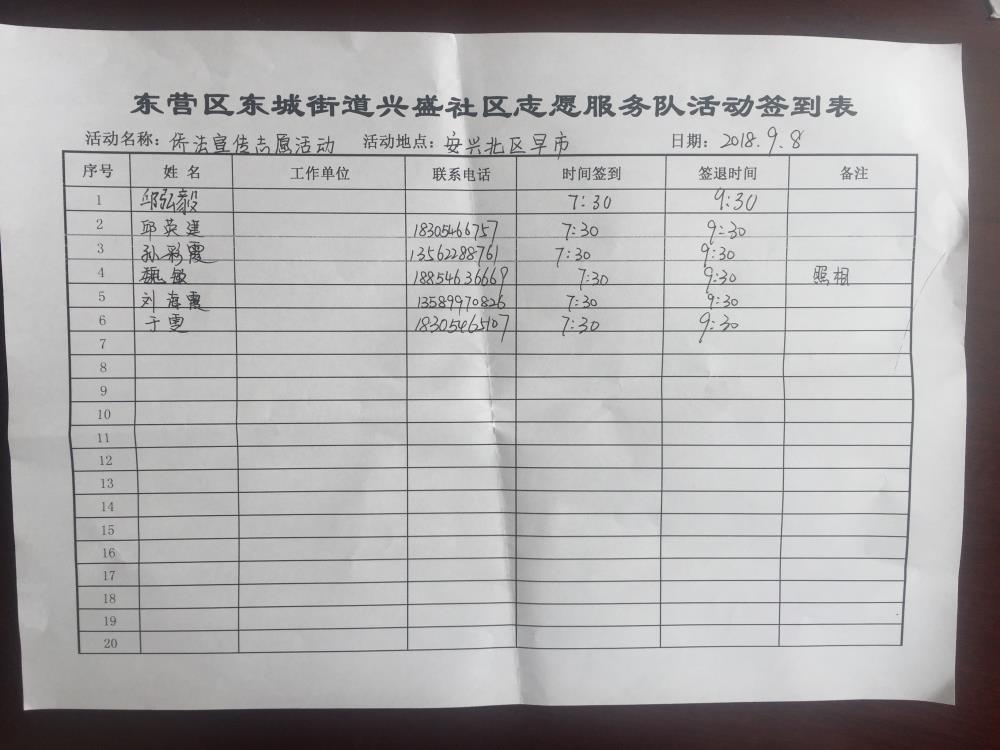 东营区东城街道兴盛社区志愿服务队活动签到表
活动名称：侨法宣传志愿活动 活动地点：安兴北区早市 日期：2018.9.8
序号 姓名 工作单位 联系电话 时间签到 签退时间 备注
1 邱弘毅 7:30 9:30
2 邱英建 18305466757 7:30 9:30
3 孙彩霞 13562288761 7:30 9:30
4 魏敏 18854636669 7:30 9:30 照相
5 刘海霞 13589970826 7:30 9:30
6 于雯 18305465107 7:30 9:30
7
8
9
10
11
12
13
14
15
16
17
18
19
20